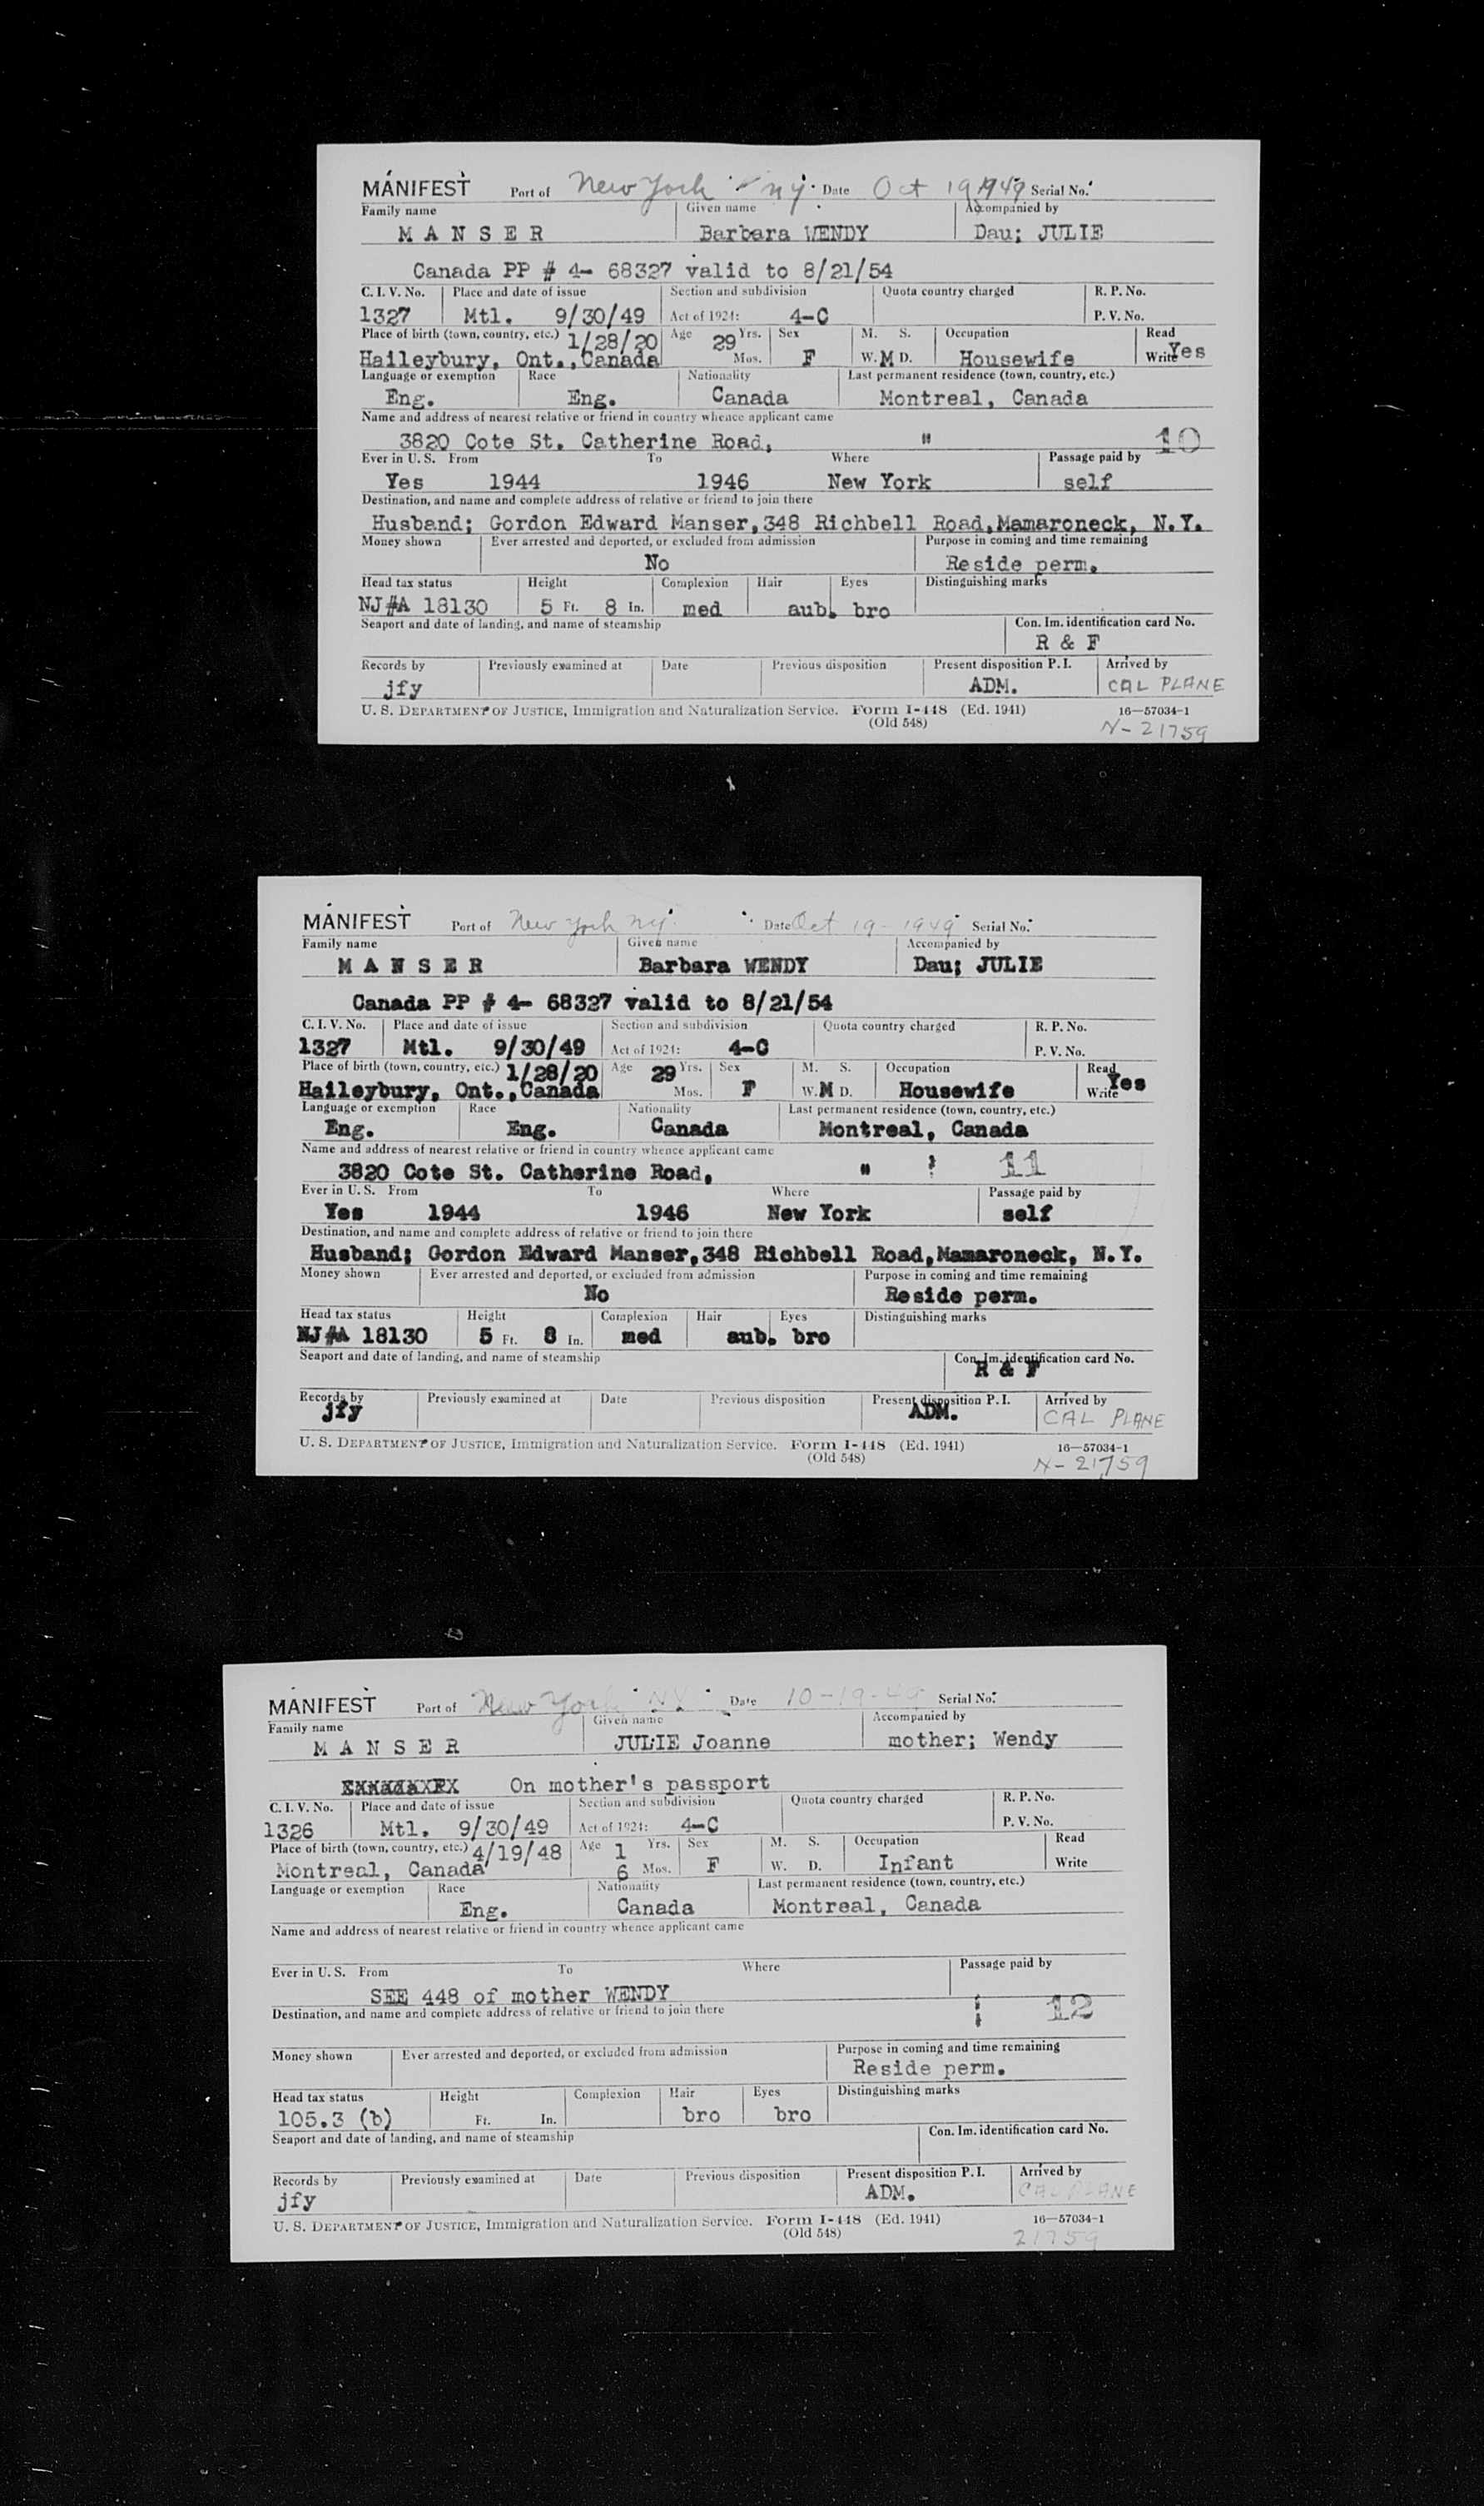 MANIFEST Port of New York NY. Date Oct 19 1949 Serial No.
Family name Given name Accompanied by
MANSER Barbara WENDY Dau; JULIE
Canada PP # 4- 68327 valid to 8/21/54
C. I. V. No. Place and date of issue Section and subdivision Quota country charged R. P. No.
1327 Mtl. 9/30/49 Act of 1924: 4-C P. V. No.
Place of birth (town, country, etc.) 1/28/20 Age 29 Yrs. Sex M. S. Occupation Read
Haileybury, Ont., Canada Mos. F W. M D. Housewife Write Yes
Language or exemption Race Nationality Last permanent residence (town, country, etc.)
Eng. Eng. Canada Montreal, Canada
Name and address of nearest relative or friend in country whence applicant came
3820 Cote St. Catherine Road, " 10
Ever in U. S. From To Where Passage paid by
Yes 1944 1946 New York self
Destination, and name and complete address of relative or friend to join there
Husband; Gordon Edward Manser, 348 Richbell Road, Mamaroneck, N.Y.
Money shown Ever arrested and deported, or excluded from admission Purpose in coming and time remaining
No Reside perm.
Head tax status Height Complexion Hair Eyes Distinguishing marks
NJ#A 18130 5 Ft. 8 In. med aub. bro
Seaport and date of landing, and name of steamship Con. Im. identification card No.
R & F
Records by Previously examined at Date Previous disposition Present disposition P. I. Arrived by
jfy ADM. CAL PLANE
U. S. DEPARTMENT OF JUSTICE, Immigration and Naturalization Service. Form I-448 (Ed. 1941) 16—57034-1
(Old 548) N-21759
MANIFEST Port of New York NY. Date Oct 19-1949 Serial No.
Family name Given name Accompanied by
MANSER Barbara WENDY Dau; JULIE
Canada PP # 4- 68327 valid to 8/21/54
C. I. V. No. Place and date of issue Section and subdivision Quota country charged R. P. No.
1327 Mtl. 9/30/49 Act of 1924: 4-C P. V. No.
Place of birth (town, country, etc.) 1/28/20 Age 29 Yrs. Sex M. S. Occupation Read
Haileybury, Ont., Canada Mos. F W. M D. Housewife Write Yes
Language or exemption Race Nationality Last permanent residence (town, country, etc.)
Eng. Eng. Canada Montreal, Canada
Name and address of nearest relative or friend in country whence applicant came
3820 Cote St. Catherine Road, " 11
Ever in U. S. From To Where Passage paid by
Yes 1944 1946 New York self
Destination, and name and complete address of relative or friend to join there
Husband; Gordon Edward Manser, 348 Richbell Road, Mamaroneck, N.Y.
Money shown Ever arrested and deported, or excluded from admission Purpose in coming and time remaining
No Reside perm.
Head tax status Height Complexion Hair Eyes Distinguishing marks
NJ#A 18130 5 Ft. 8 In. med aub. bro
Seaport and date of landing, and name of steamship Con. Im. identification card No.
R & F
Records by Previously examined at Date Previous disposition Present disposition P. I. Arrived by
jfy ADM. CAL PLANE
U. S. DEPARTMENT OF JUSTICE, Immigration and Naturalization Service. Form I-448 (Ed. 1941) 16—57034-1
(Old 548) N-21759
MANIFEST Port of New York NY. Date 10-19-49 Serial No.
Family name Given name Accompanied by
MANSER JULIE Joanne mother; Wendy
On mother's passport
C. I. V. No. Place and date of issue Section and subdivision Quota country charged R. P. No.
1326 Mtl. 9/30/49 Act of 1924: 4-C P. V. No.
Place of birth (town, country, etc.) 4/19/48 Age 1 Yrs. Sex M. S. Occupation Read
Montreal, Canada 6 Mos. F W. D. Infant Write
Language or exemption Race Nationality Last permanent residence (town, country, etc.)
Eng. Canada Montreal, Canada
Name and address of nearest relative or friend in country whence applicant came
Ever in U. S. From To Where Passage paid by
SEE 448 of mother WENDY
Destination, and name and complete address of relative or friend to join there 12
Money shown Ever arrested and deported, or excluded from admission Purpose in coming and time remaining
Reside perm.
Head tax status Height Complexion Hair Eyes Distinguishing marks
105.3 (b) Ft. In. bro bro
Seaport and date of landing, and name of steamship Con. Im. identification card No.
Records by Previously examined at Date Previous disposition Present disposition P. I. Arrived by
jfy ADM. CAL PLANE
U. S. DEPARTMENT OF JUSTICE, Immigration and Naturalization Service. Form I-448 (Ed. 1941) 16—57034-1
(Old 548) 21759